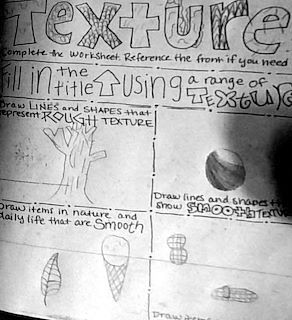 Texture
Complete the Worksheet. Reference the front if you need
Fill in the title using a range of
TEXTURE
Draw LINES and SHAPES that
represent ROUGH TEXTURE
Draw lines and shapes
show SMOOTH TEXTURE
Draw items in nature and
daily life that are Smooth
Draw items